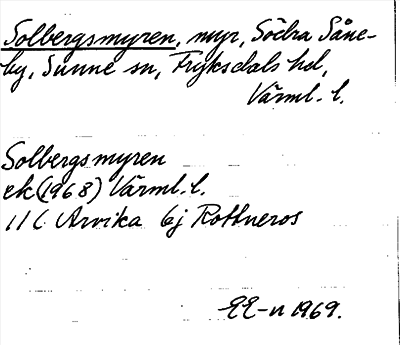 Solbergsmyren, myr, Södra Såne-
by, Sunne sn, Fryksdals hd,
Värml. l.
Solbergsmyren
ek (1968) Värml. l.
11 C Arvika 6j Rottneros
EE-n 1969.